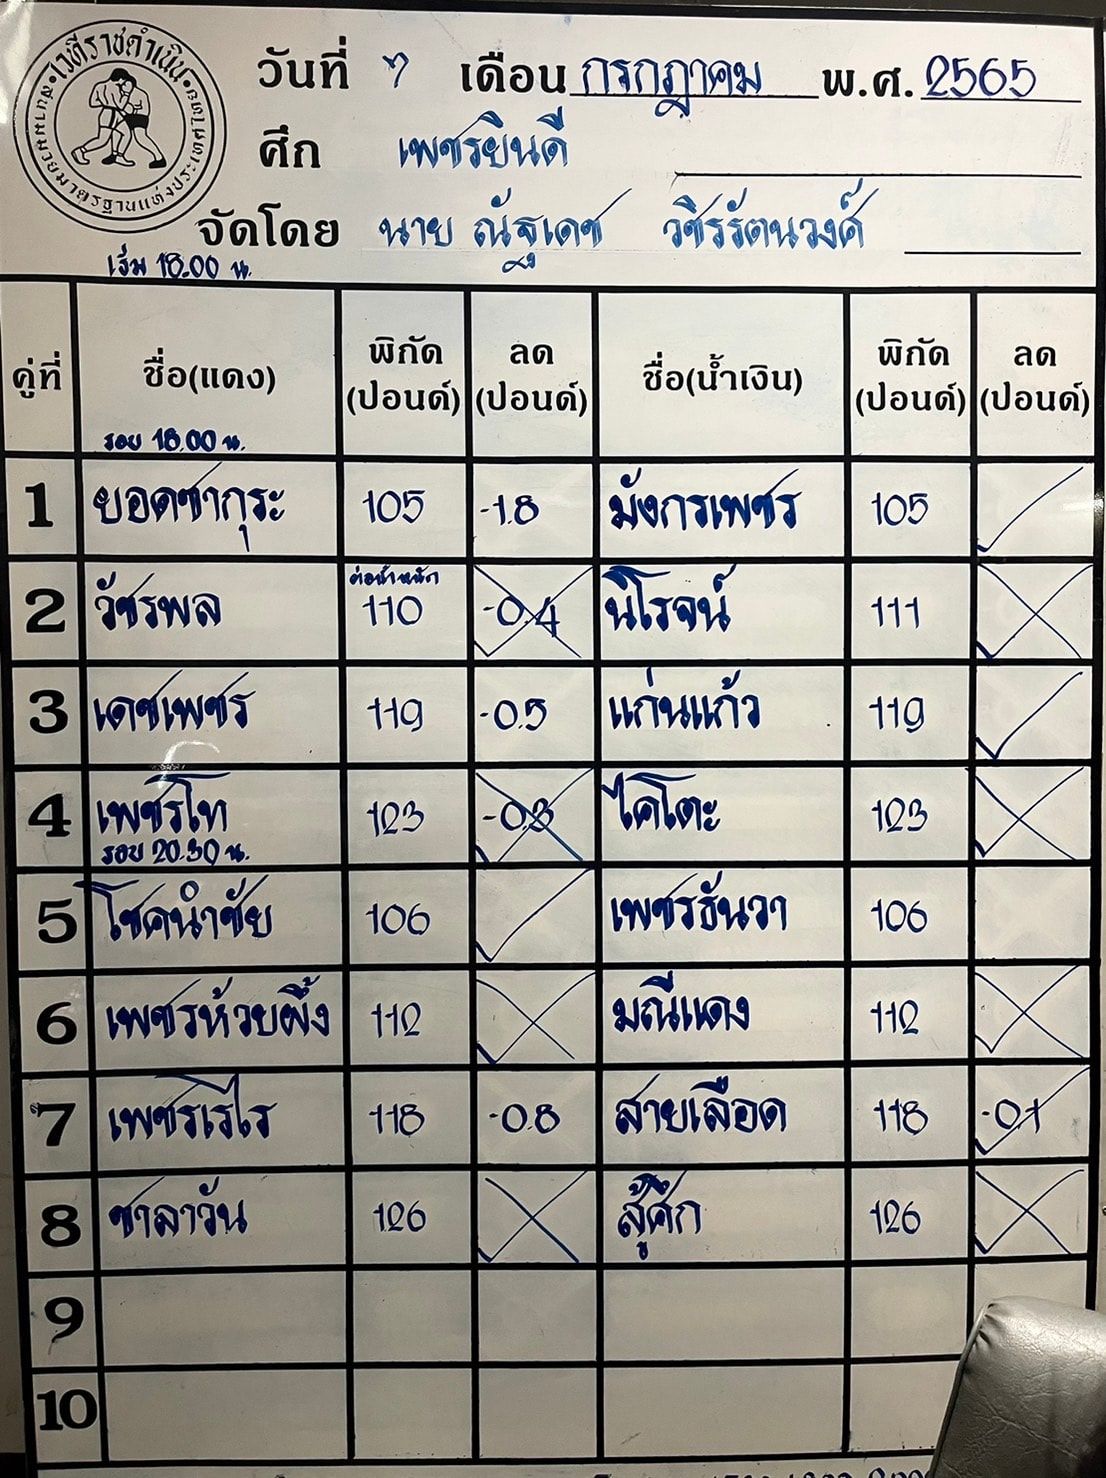 เวทีราชดำเนิน
สนามมวยมาตรฐานแห่งประเทศไทย
วันที่ 7 เดือน กรกฎาคม พ.ศ. 2565
ศึก เพชรยินดี
จัดโดย นาย ณัฐเดช วชิรรัตนวงศ์
เริ่ม 18.00 น.
คู่ที่ ชื่อ(แดง) พิกัด (ปอนด์) ลด (ปอนด์) ชื่อ(น้ำเงิน) พิกัด (ปอนด์) ลด (ปอนด์)
รอบ 18.00 น.
1 ยอดซากุระ 105 -1.8 มังกรเพชร 105
ต่อน้ำหนัก
2 วัชรพล 110 -0.4 นิโรจน์ 111
3 เดชเพชร 119 -0.5 แก่นแก้ว 119
4 เพชรโท 123 -0.3 ไคโตะ 123
รอบ 20.30 น.
5 โชคนำชัย 106 เพชรธันวา 106
6 เพชรห้วยผึ้ง 112 มณีแดง 112
7 เพชรเรไร 118 -0.8 สายเลือด 118 -0.1
8 ชาลาวัน 126 สู้ศึก 126
9
10